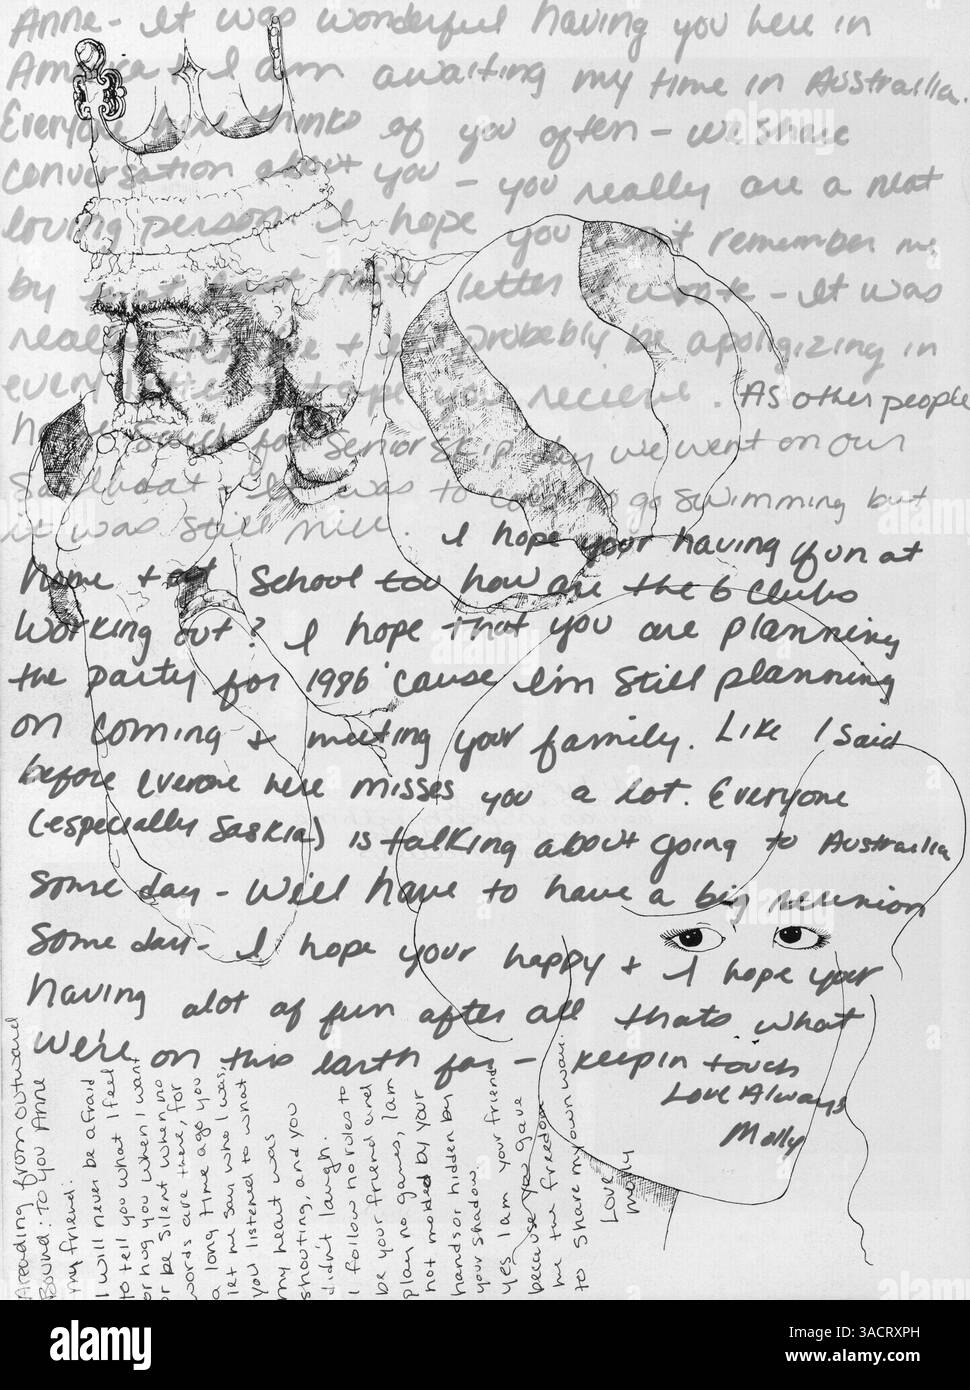 Anne - It was wonderful having you here in
America & I am awaiting my time in Australia.
Everyone here thinks of you often - we share
conversation about you - you really are a neat
loving person. I hope you won't remember me
by that last letter I wrote - It was
really & I'll probably be apoligizing in
every letter & tape you recieve. As other people
have said for Senior skip day we went on our
Sailboat - It was to cold to go swimming but
it was still nice. I hope your having fun at
home + at School too how are the 6 clubs
working out? I hope that you are planning
the party for 1986 'cause I'm still planning
on coming & meeting your family. Like I said
before everone here misses you a lot. Everyone
(especially Saskia) is talking about going to Australia
some day - will have to have a big reunion
some day - I hope your happy + I hope your
having alot of fun after all thats what
We're on this earth for - keep in touch
Love Always
Molly
A reading from outward
Bound: To you Anne
my friend:
I will never be afraid
to tell you what I feel
or hug you when I want
or be silent when no
words are there, for
a long time ago you
let me say who I was,
you listened to what
my heart was
shouting, and you
didn't laugh.
I follow no rules to
be your friend and
play no games, I am
not molded by your
hands or hidden by
your shadow.
Yes I am your friend
because you gave
me the freedom
to share my own way.
Love
Molly
alamy
Image ID: 3ACRXPH
www.alamy.com